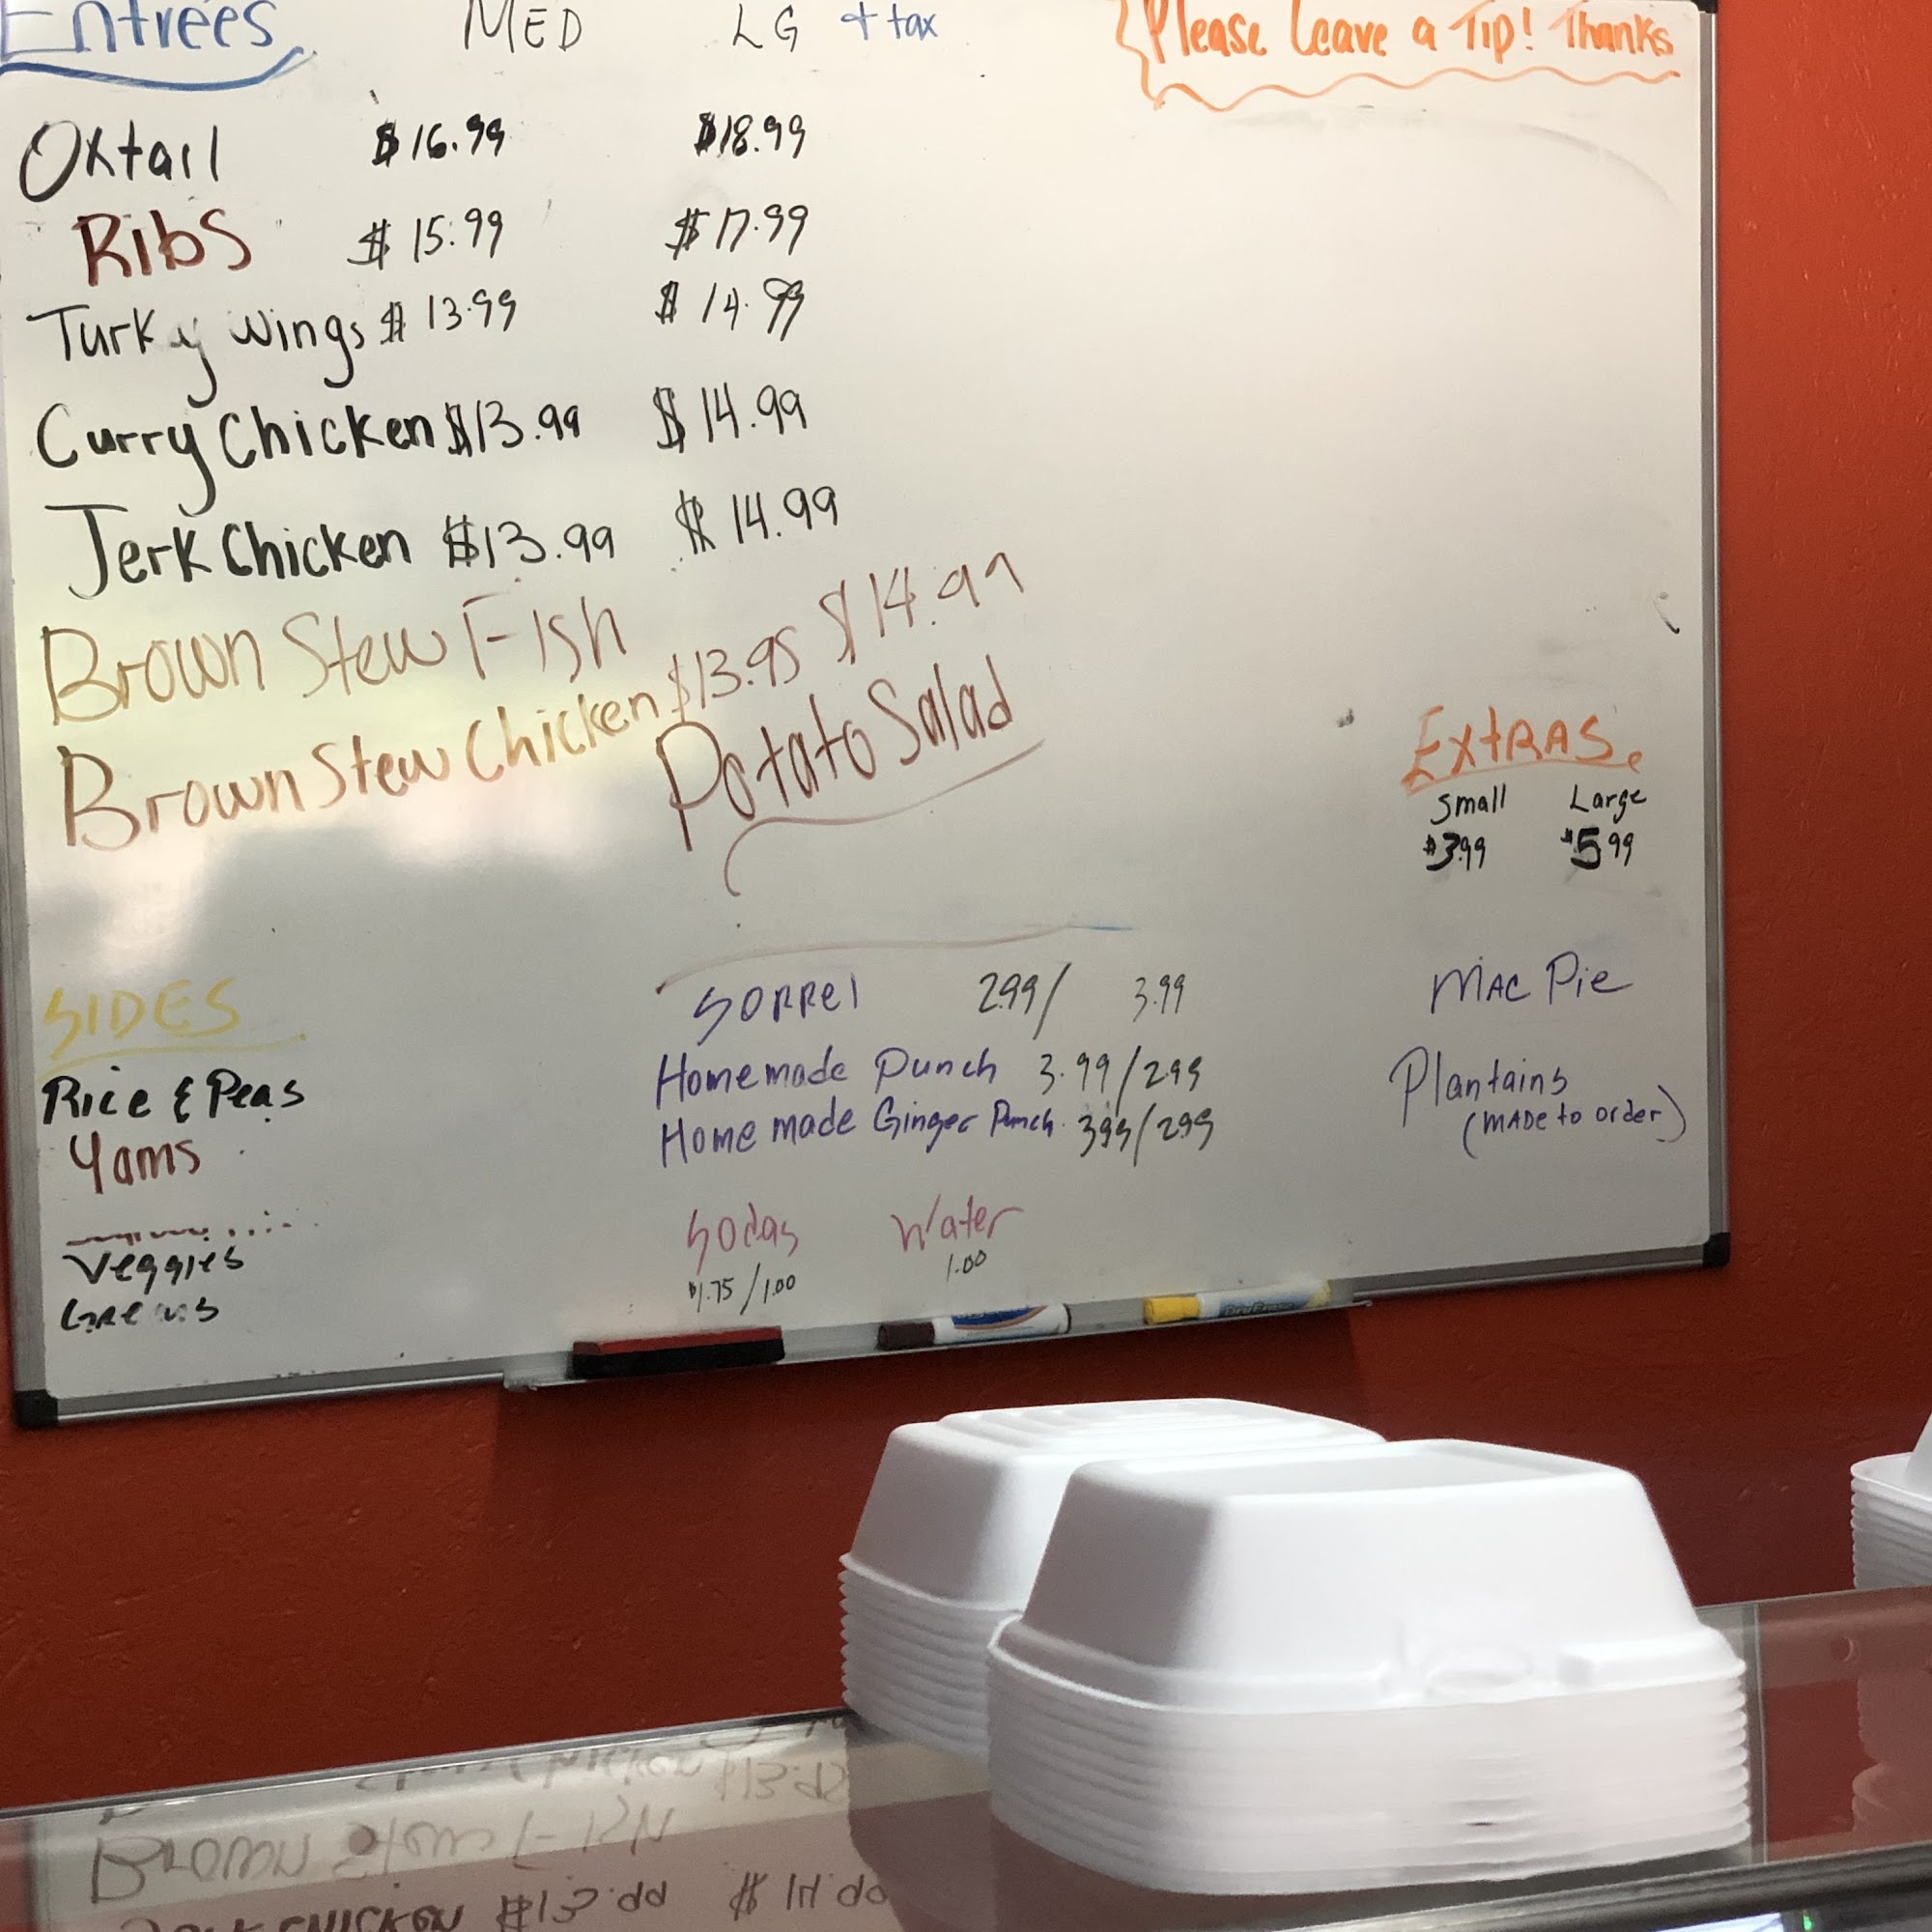 Entrees MED LG + tax
Please Leave a Tip! Thanks
Oxtail $16.99 $18.99
Ribs $15.99 $17.99
Turky wings $13.99 $14.99
Curry Chicken $13.99 $14.99
Jerk Chicken $13.99 $14.99
Brown Stew Fish
Brown Stew Chicken $13.95 $14.99
Potato Salad
EXtRAS.
Small Large
$3.99 $5.99
MAC Pie
Plantains
(MADE to order)
SIDES
Rice & Peas
Yams
Veggies
Greens
SORREl 2.99/ 3.99
Homemade Punch 3.99/2.99
Home made Ginger Punch 3.99/2.99
Sodas Water
$1.75/1.00 1.00